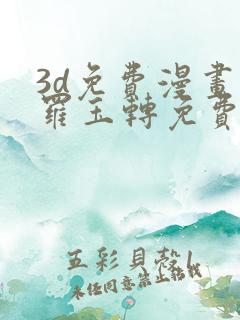 3d免費漫畫
羅玉轉免費
五彩貝殼1
未經同意禁止轉載